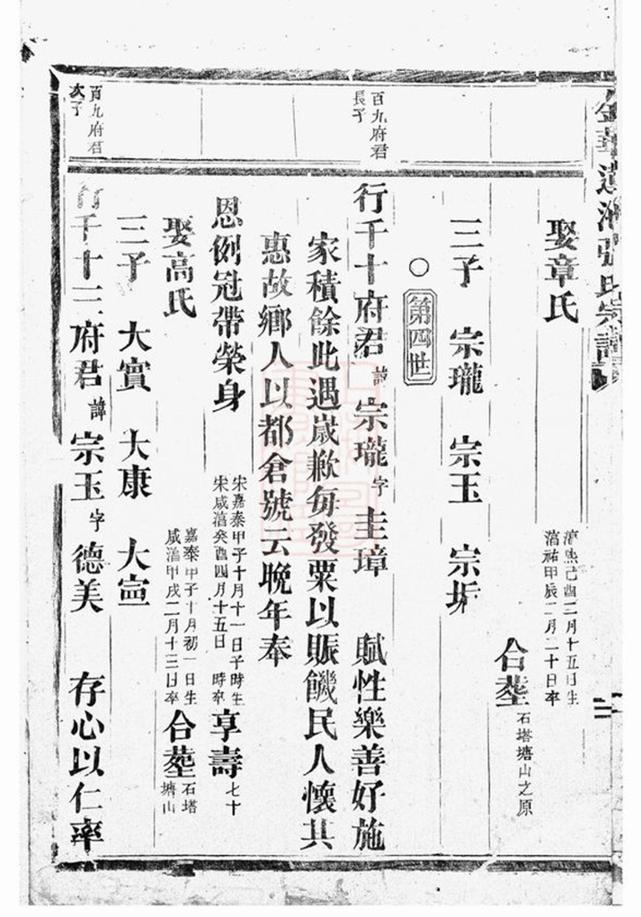 張氏宗譜
娶章氏 淳熙己酉三月十五日生
淳祐甲辰二月二十日卒
合塟石塔塘山之原
三子 宗瓏 宗玉 宗垢
〇第四世
百九府君
長子
行千十府君諱宗瓏字圭璋 賦性樂善好施
家積餘此遇歲歉每發粟以賑饑民人懷其
惠故鄉人以都倉號云晚年奉
恩例冠帶榮身 宋嘉泰甲子十月十一日子時生
宋咸淳癸酉四月十五日 時卒
享壽七十
娶高氏 嘉泰甲子十月初一日生
咸淳甲戌二月十三日卒
合塟石塔
塘山
三子 大實 大康 大寍
百九府君
次子
行千十二府君諱宗玉字德美 存心以仁率